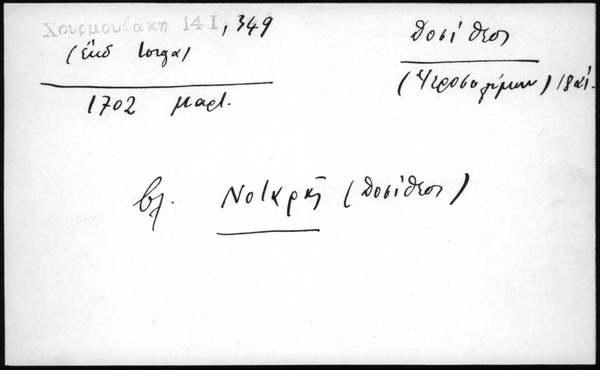 Χουρμουζάκη 14 I, 349
(ἔκδ Iorga)
1702 μαρτ.
Δοσίθεος
(Ἱεροσολύμων) 18 αἰ.
βλ. Νοταρᾶ (Δοσίθεος)